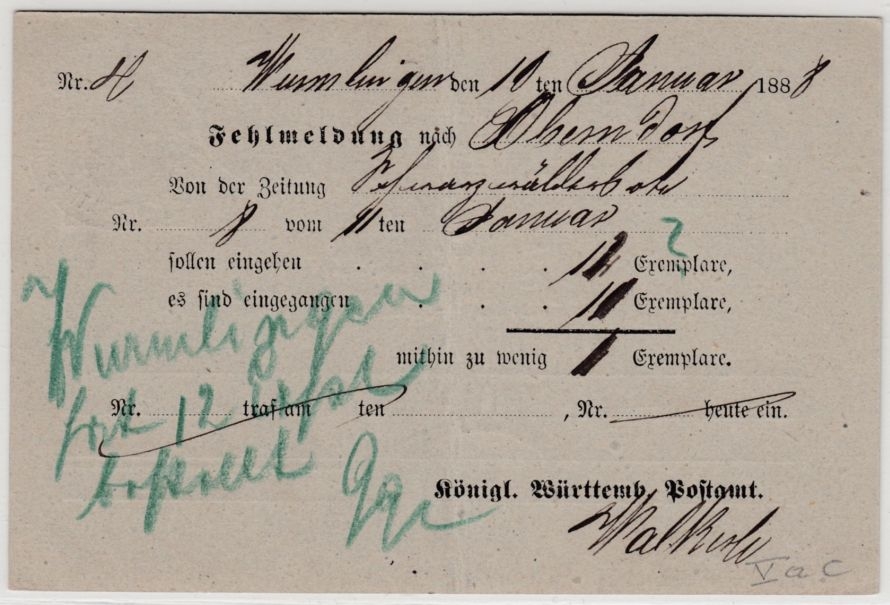 Nr. Wurmlingen den 10ten Januar 1888
Fehlmeldung nach Oberndorf
Von der Zeitung Schwarzwälderbote
Nr. 8 vom 11ten Januar
?
sollen eingehen . . . . Exemplare,
es sind eingegangen . . . 10 Exemplare,
mithin zu wenig 1 Exemplare.
Nr. traf am ten , Nr. heute ein.
Wurmlingen
hat 12 Expl
bestellt
Königl. Württemb. Postamt.
V a c